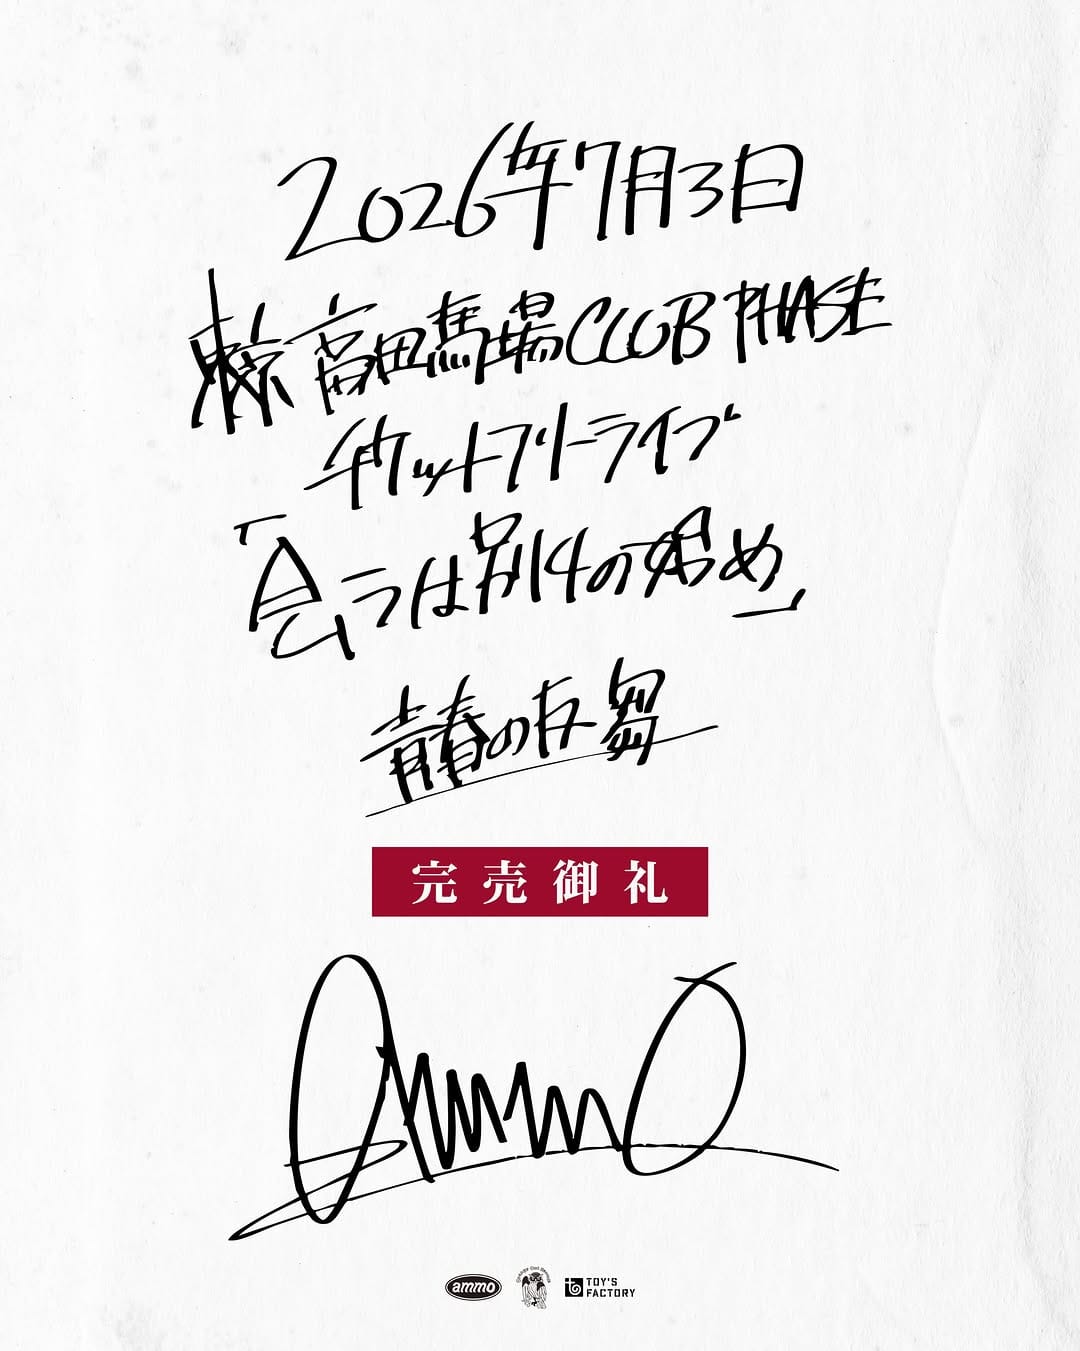 2026年7月3日
東京 高田馬場CLUB PHASE
チケットフリーライブ
「会うは別れの始め」
青春の反芻
完売御礼
ammo
ammo
TOY'S FACTORY